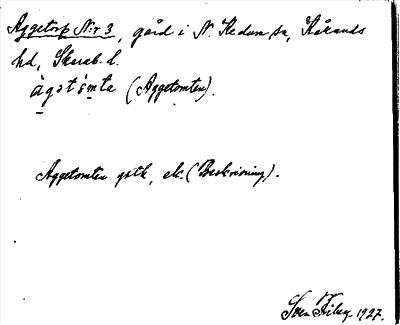 Aggetorp N:r 3, gård i N. Kedum sn, Kåkinds
hd, Skarab. l.
ägətɷmta (Aggetomten).
Aggetomten gstk, ek. (Beskrivning).
Sven Friberg 1927.